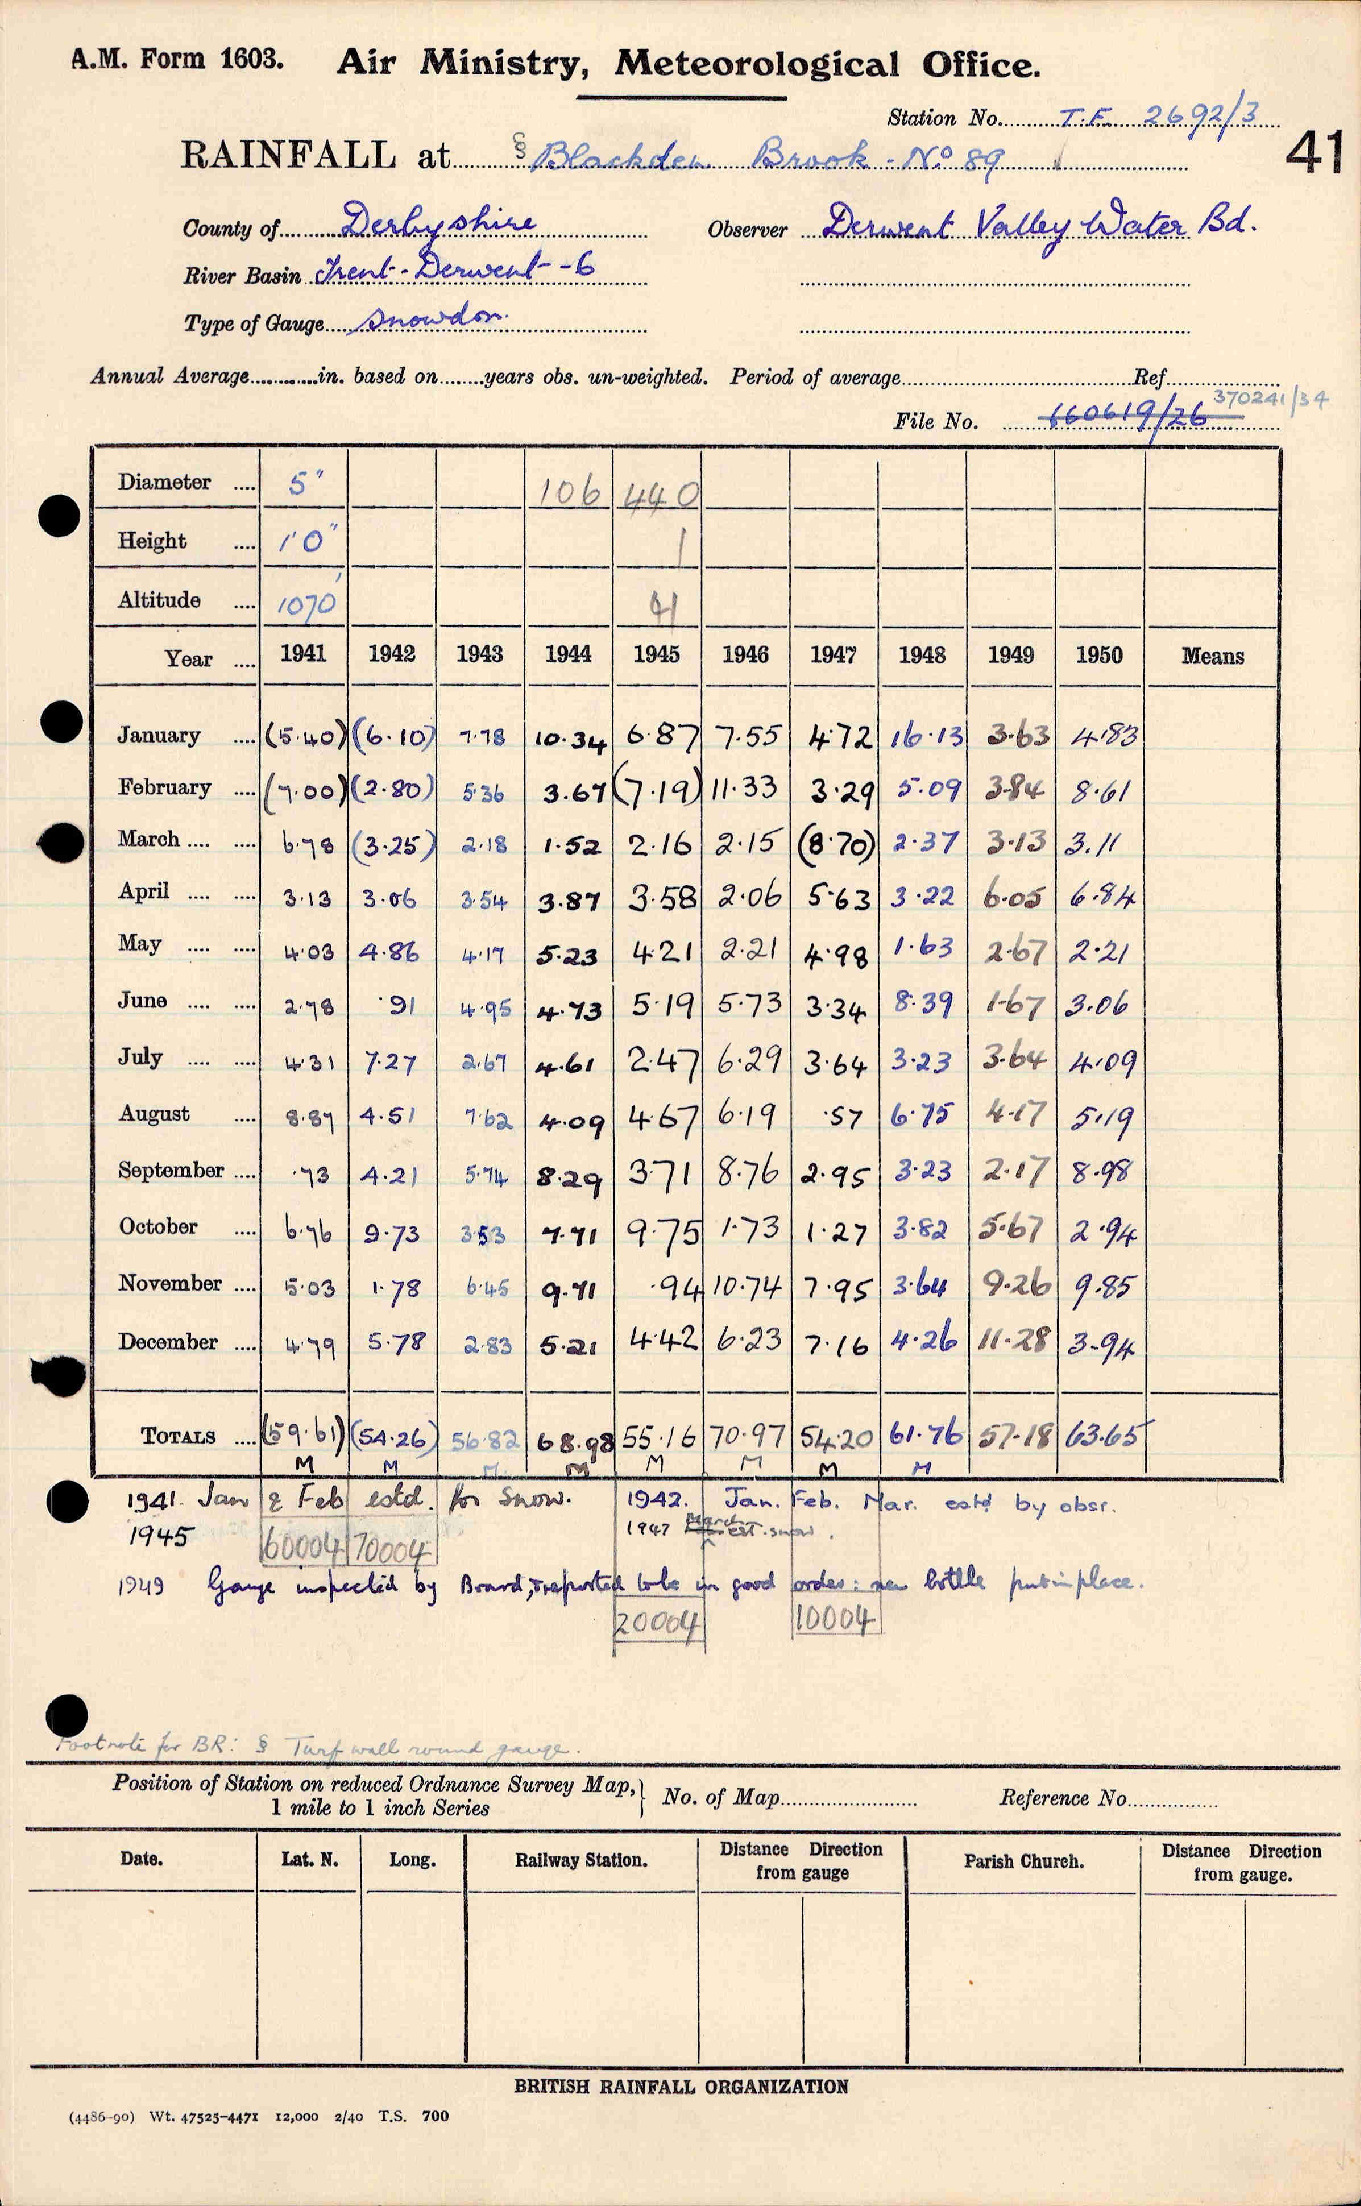 A.M. Form 1603. Air Ministry, Meteorological Office.
Station No. T.F. 2692/3
RAINFALL at § Blackden Brook - No 89
41
County of Derbyshire Observer Derwent Valley Water Bd.
River Basin Trent - Derwent - 6
Type of Gauge Snowdon
Annual Average............in. based on........years obs. un-weighted. Period of average................Ref................
File No. 160619/26 370241/34
Diameter .... 5" 106 440
Height .... 1'0" 1
Altitude .... 1070' 41
Year .... 1941 1942 1943 1944 1945 1946 1947 1948 1949 1950 Means
January .... (5.40) (6.10) 7.78 10.34 6.87 7.55 4.72 16.13 3.63 4.83
February .... (7.00) (2.80) 5.36 3.67 (7.19) 11.33 3.29 5.09 3.84 8.61
March .... .... 6.78 (3.25) 2.18 1.52 2.16 2.15 (8.70) 2.37 3.13 3.11
April .... .... 3.13 3.06 3.54 3.87 3.58 2.06 5.63 3.22 6.05 6.84
May .... .... 4.03 4.86 4.17 5.23 4.21 2.21 4.98 1.63 2.67 2.21
June .... .... 2.78 .91 4.95 4.73 5.19 5.73 3.34 8.39 1.67 3.06
July .... .... 4.31 7.27 2.67 4.61 2.47 6.29 3.64 3.23 3.64 4.09
August .... 8.87 4.51 7.62 4.09 4.67 6.19 .57 6.75 4.17 5.19
September .... .73 4.21 5.74 8.29 3.71 8.76 2.95 3.23 2.17 8.98
October .... 6.76 9.73 3.53 7.71 9.75 1.73 1.27 3.82 5.67 2.94
November .... 5.03 1.78 6.45 9.71 .94 10.74 7.95 3.64 9.26 9.85
December .... 4.79 5.78 2.83 5.21 4.42 6.23 7.16 4.26 11.28 3.94
TOTALS .... (59.61) (54.26) 56.82 68.98 55.16 70.97 54.20 61.76 57.18 63.65
M M M M M M M M
1941. Jan & Feb estd. for snow. 1942. Jan. Feb. Mar. estd by obsr.
1945 60004 70004 1947 March est. snow.
1949 Gauge inspected by Board, reported to be in good order: new bottle put in place.
20004 10004
Footnote for BR: § Turf wall round gauge.
Position of Station on reduced Ordnance Survey Map, 1 mile to 1 inch Series } No. of Map........................ Reference No................
Date. Lat. N. Long. Railway Station. Distance Direction from gauge Parish Church. Distance Direction from gauge.
BRITISH RAINFALL ORGANIZATION
(4486-90) Wt. 47525-4471 12,000 2/40 T.S. 700